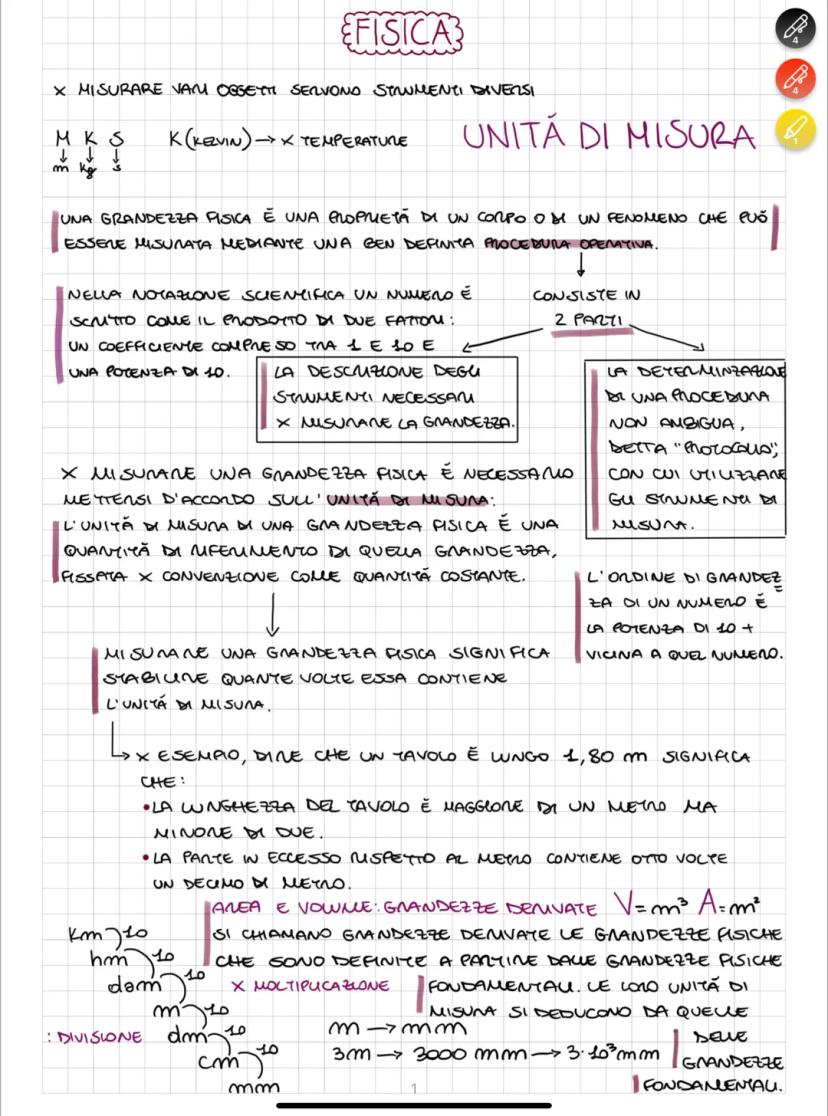 FISICA
× MISURARE VARI OGGETTI SERVONO STRUMENTI DIVERSI
UNITÁ DI MISURA
M K S
K (KELVIN) → × TEMPERATURE
↓ ↓ ↓
m kg s
UNA GRANDEZZA FISICA É UNA PROPRIETÁ DI UN CORPO O DI UN FENOMENO CHE PUÓ
ESSERE MISURATA MEDIANTE UNA BEN DEFINITA PROCEDURA OPERATIVA.
CONSISTE IN
2 PARTI
NELLA NOTAZIONE SCIENTIFICA UN NUMERO É
SCRITTO COME IL PRODOTTO DI DUE FATTORI:
UN COEFFICIENTE COMPRESO TRA 1 E 10 E
UNA POTENZA DI 10.
LA DESCRIZIONE DEGLI
STRUMENTI NECESSARI
× MISURARE LA GRANDEZZA.
LA DETERMINZAZIONE
DI UNA PROCEDURA
NON AMBIGUA,
DETTA "PROTOCOLLO",
CON CUI UTILIZZARE
GLI STRUMENTI DI
MISURA.
× MISURARE UNA GRANDEZZA FISICA É NECESSARIO
METTERSI D'ACCORDO SULL'UNITÁ DI MISURA:
L'UNITÁ DI MISURA DI UNA GRANDEZZA FISICA É UNA
QUANTITÁ DI RIFERIMENTO DI QUELLA GRANDEZZA,
FISSATA × CONVENZIONE COME QUANTITÁ COSTANTE.
L'ORDINE DI GRANDEZ=
ZA DI UN NUMERO É
LA POTENZA DI 10 +
VICINA A QUEL NUMERO.
MISURARE UNA GRANDEZZA FISICA SIGNIFICA
STABILIRE QUANTE VOLTE ESSA CONTIENE
L'UNITÁ DI MISURA.
× ESEMPIO, DIRE CHE UN TAVOLO É LUNGO 1,80 m SIGNIFICA
CHE:
• LA LUNGHEZZA DEL TAVOLO É MAGGIORE DI UN METRO MA
MINORE DI DUE.
• LA PARTE IN ECCESSO RISPETTO AL METRO CONTIENE OTTO VOLTE
UN DECIMO DI METRO.
AREA E VOLUME: GRANDEZZE DERIVATE V=m³ A=m²
SI CHIAMANO GRANDEZZE DERIVATE LE GRANDEZZE FISICHE
CHE SONO DEFINITE A PARTIRE DALLE GRANDEZZE FISICHE
FONDAMENTALI. LE LORO UNITÁ DI
MISURA SI DEDUCONO DA QUELLE
DELLE
GRANDEZZE
FONDAMENTALI.
km 10
hm 10
dam 10
m 10
dm 10
cm 10
mm
× MOLTIPLICAZIONE
: DIVISIONE
m → mm
3m → 3000 mm → 3·10³mm
1
4
4
1